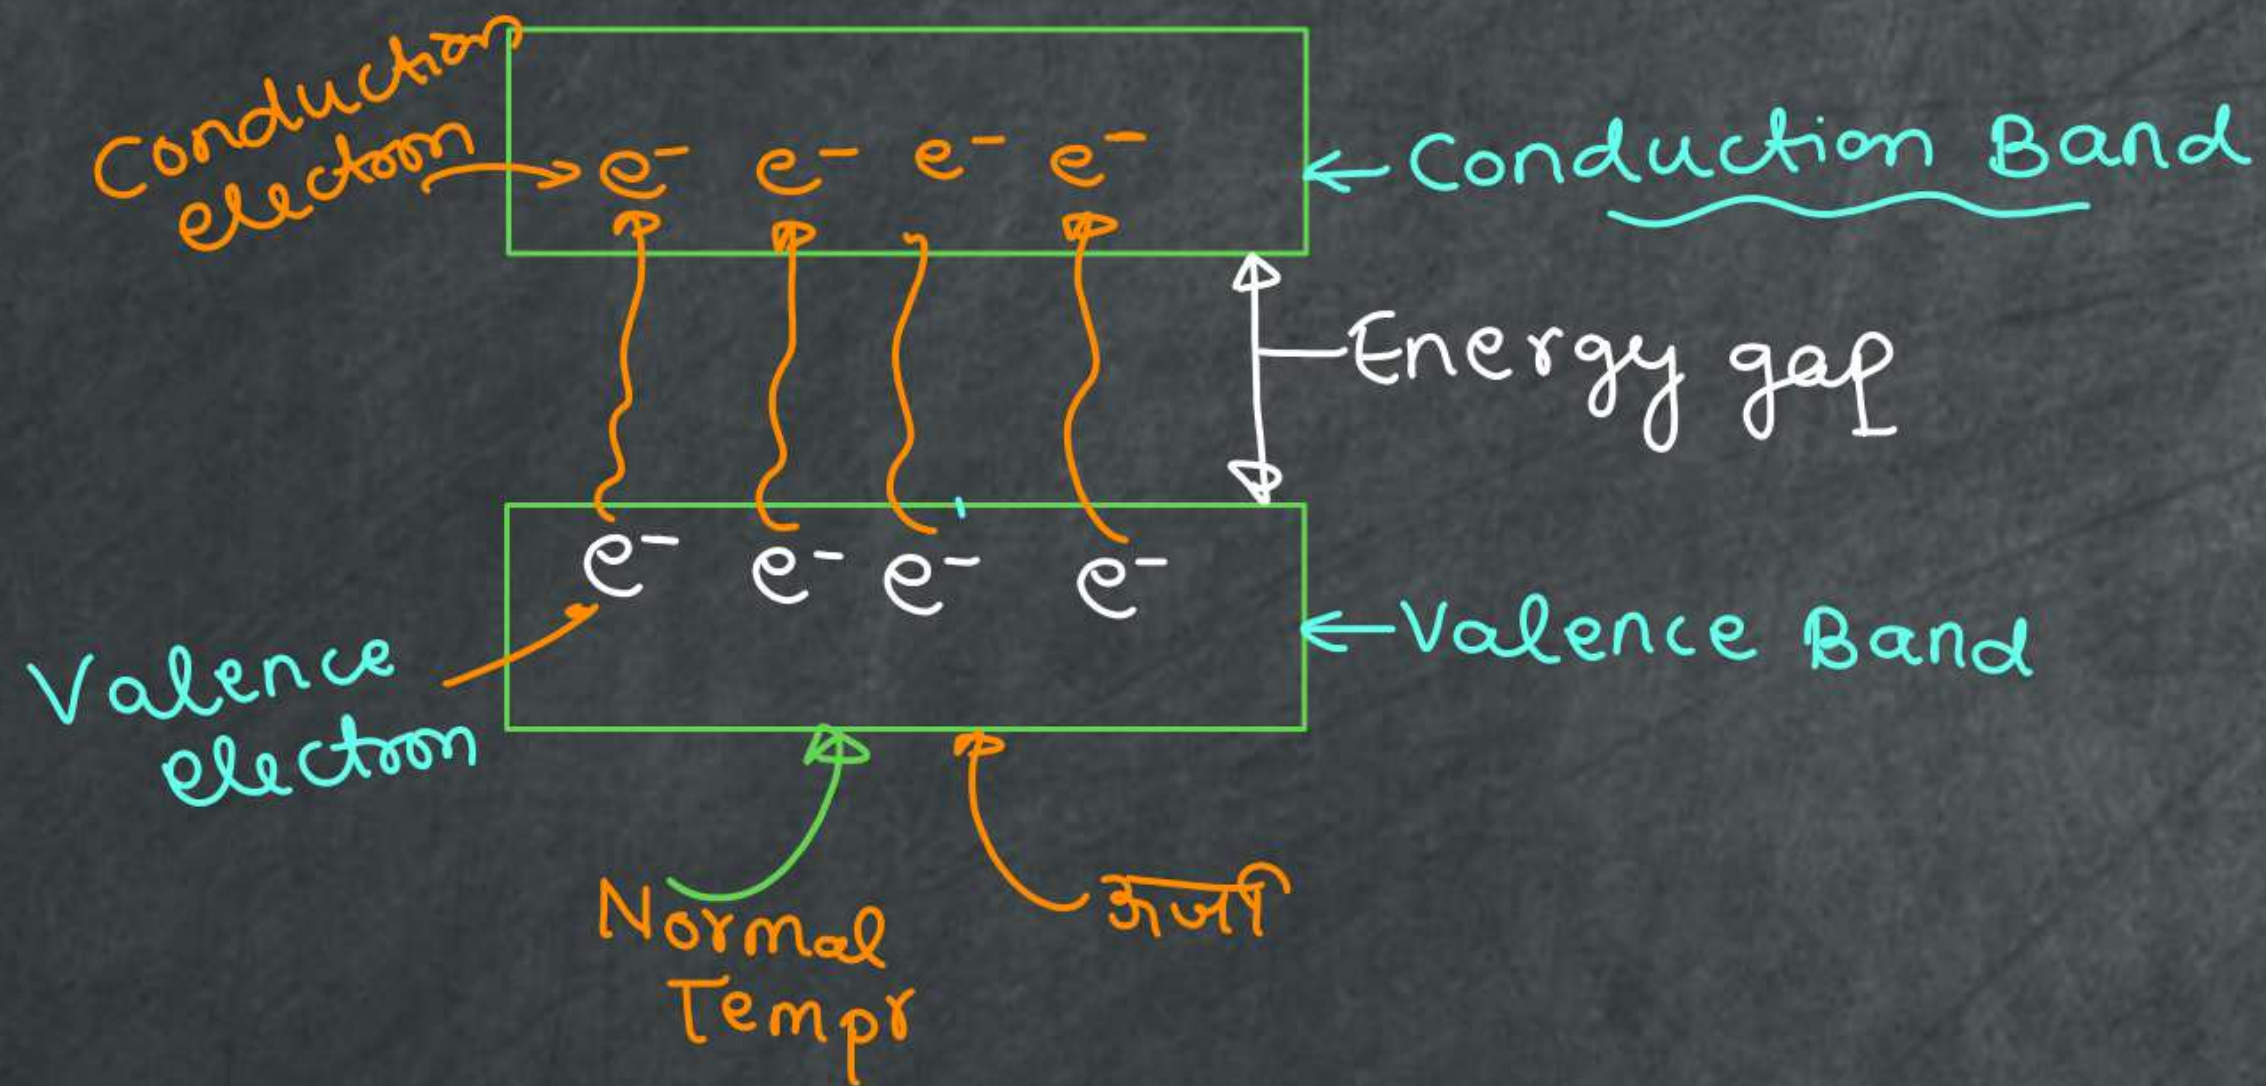 Conduction
electron
e⁻ e⁻ e⁻ e⁻
Conduction Band
Energy gap
e⁻ e⁻ e⁻ e⁻
Valence
electron
Valence Band
Normal
Tempr
ऊर्जा